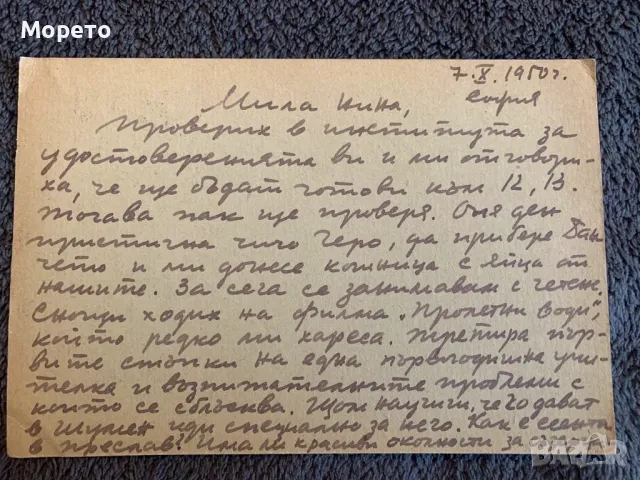 Морето
7.X.1950г.
София
Мила Нина,
Проверих в института за
удостоверенията ви и ми отговори-
ха, че ще бъдат готови към 12, 13.
Тогава пак ще проверя. Оня ден
пристигна чичо Геро, да прибере
чето и ми донесе кошница с яйца от
нашите. За сега се занимавам с
Снощи ходих на филма „Пролетни води",
който редко ми хареса. Третира пър-
вите стъпки на една първогодишна учи-
телка и възпитателните проблеми с
които се сблъсква. Щом научиш, че го дават
в Шумен иди специално за него. Как е есента
в Преслав? Има ли красиви околности за
bazar